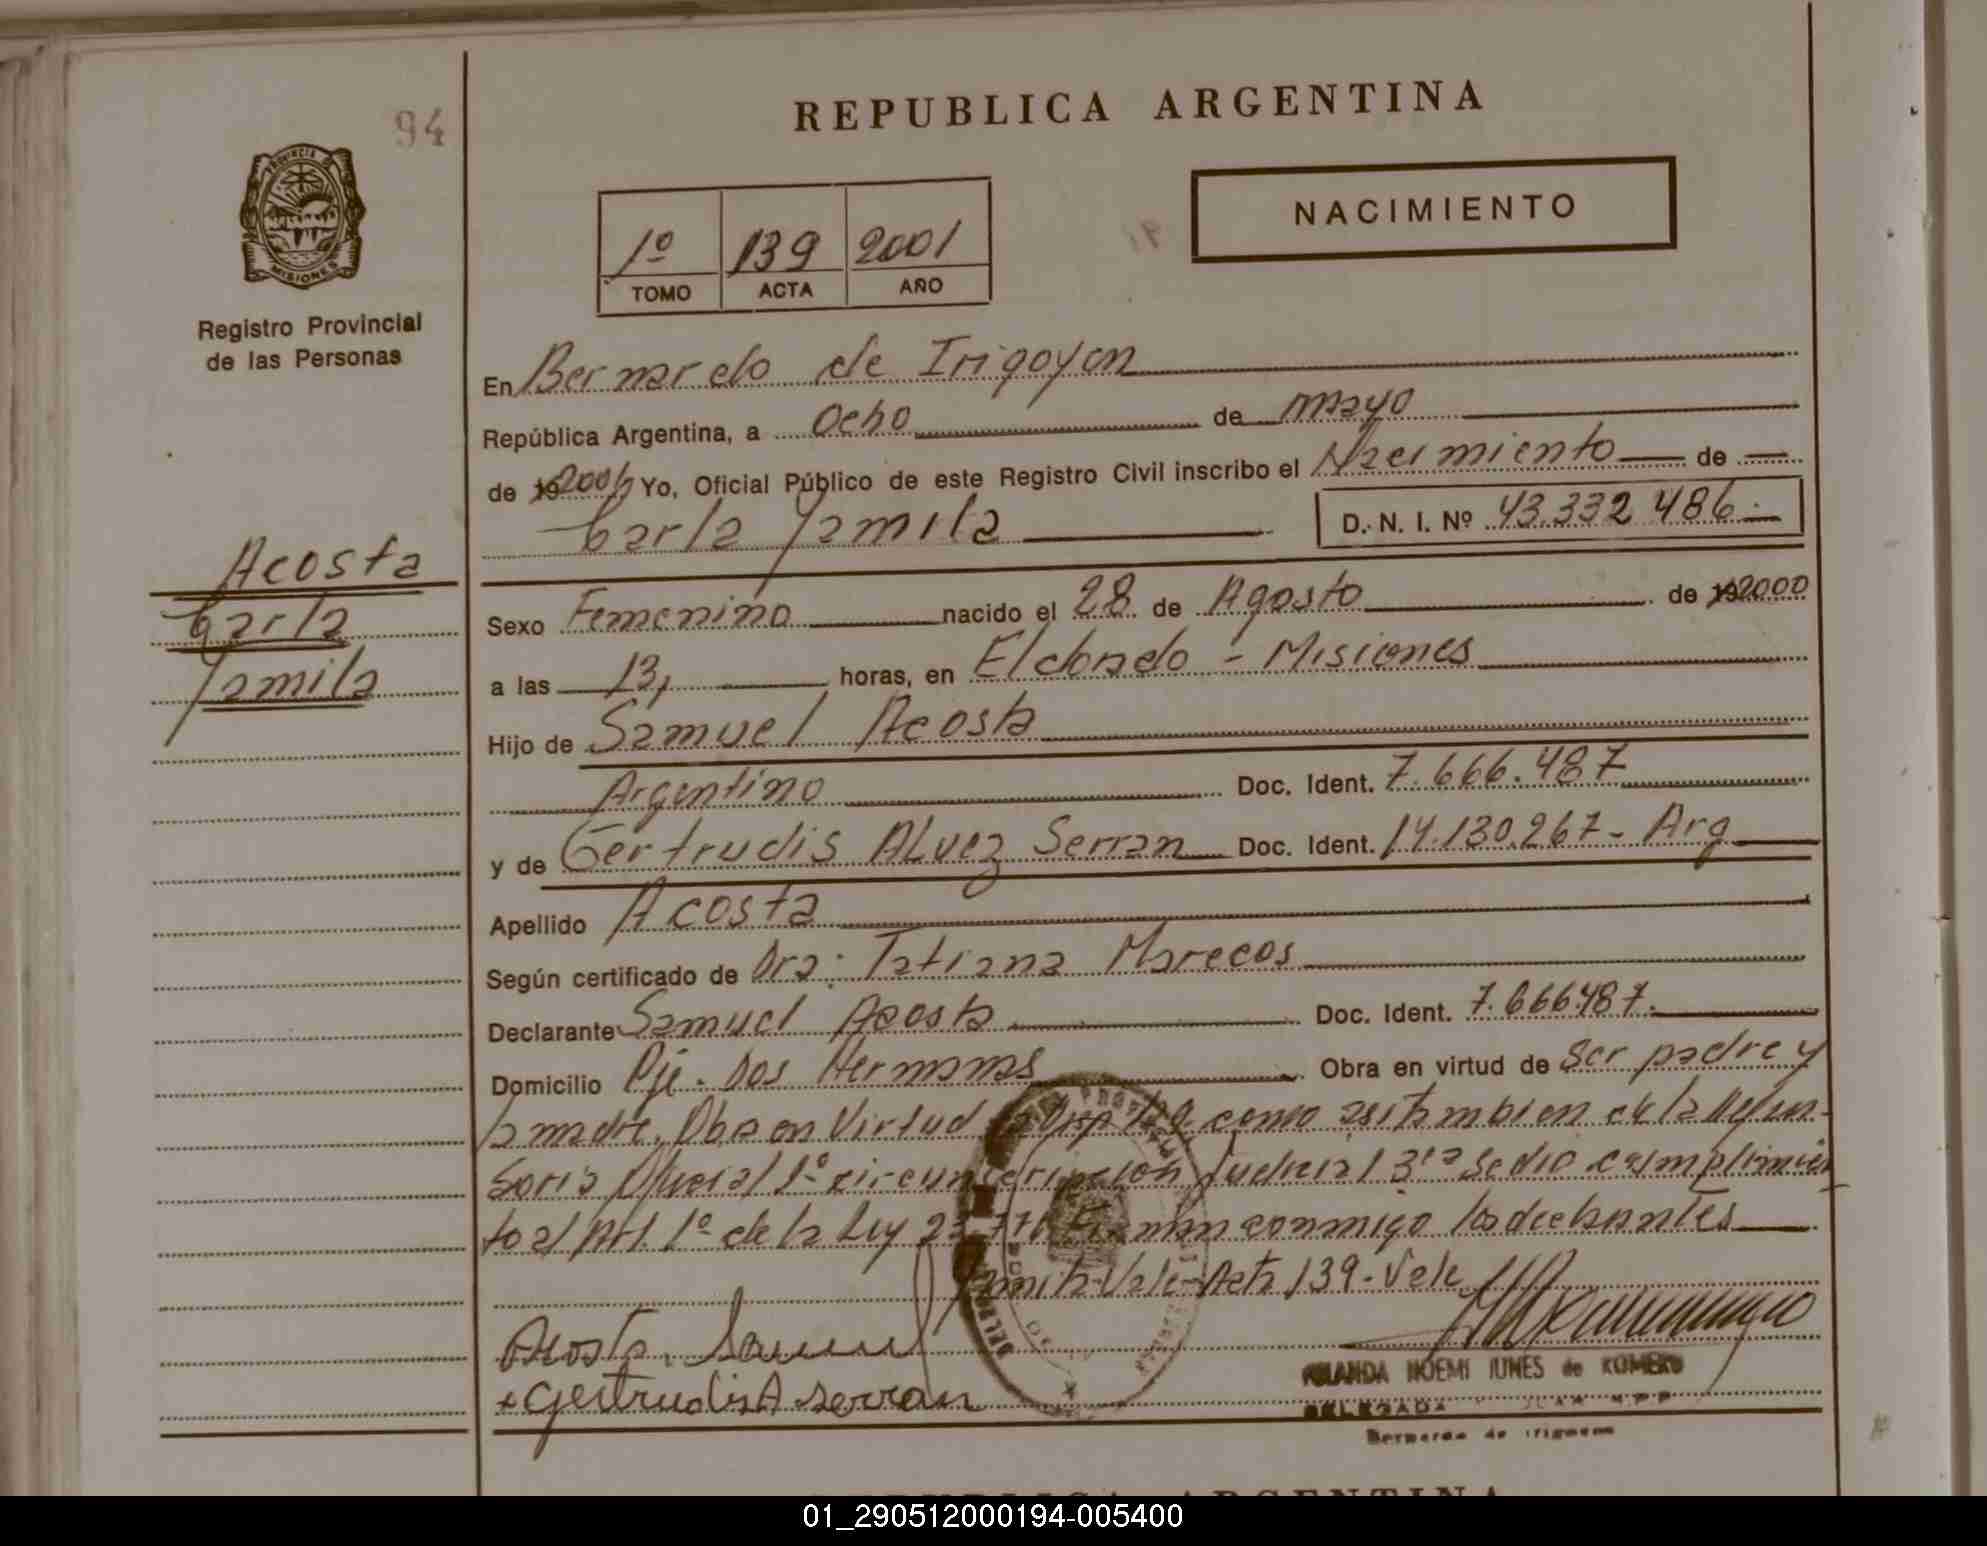 94
REPUBLICA ARGENTINA
PROVINCIA DE
MISIONES
Registro Provincial
de las Personas
1º 139 2001
TOMO ACTA AÑO
NACIMIENTO
En Bernardo de Irigoyen
República Argentina, a Ocho de mayo
de 19 2001 Yo, Oficial Público de este Registro Civil inscribo el Nacimiento de
Carla Yamila D. N. I. Nº 43.332.486.
Acosta
Carla
Yamila
Sexo Femenino nacido el 28 de Agosto de 19 2000
a las 13, horas, en Eldorado - Misiones
Hijo de Samuel Acosta
Argentino Doc. Ident. 7.666.487
y de Gertrudis Alvez Serran Doc. Ident. 14.130.267 - Arg
Apellido Acosta
Según certificado de Dra: Tatiana Marecos
Declarante Samuel Acosta Doc. Ident. 7.666.487.
Domicilio Pje. Dos Hermanas Obra en virtud de ser padre y
la madre. Obra en Virtud como asi tambien de la Defen-
soria Oficial 1º circunscripcion Judicial 3ra cumplimien
to al Art. 1º de la Ley conmigo los declarantes
Yamila-Vale-Acta 139-Vale
Acosta Samuel
+ Gertrudis A Serran
YOLANDA NOEMI IUNES de ROMERO
DELEGADA
Bernardo de Irigoyen
REPUBLICA ARGENTINA
01_290512000194-005400